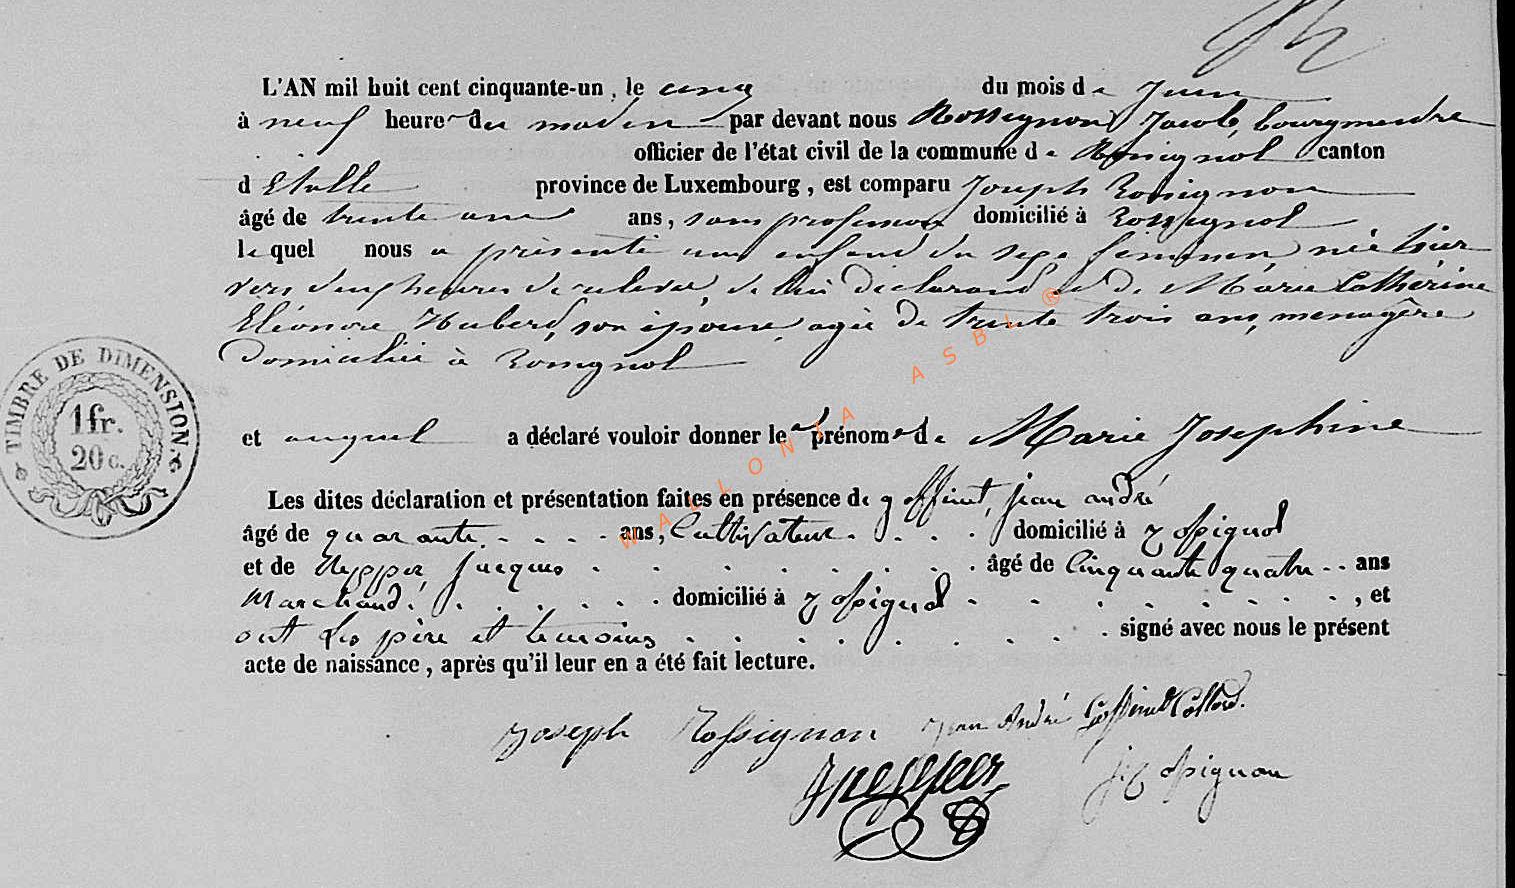 L'AN mil huit cent cinquante-un, le cinq du mois de Juin
à neuf heures du matin par devant nous Rossignon Jacob, bourgmestre
officier de l'état civil de la commune de Rossignol canton
d Etalle province de Luxembourg, est comparu Joseph Rossignon
âgé de trente un ans, sans profession domicilié à Rossignol
lequel nous a présenté un enfant du sexe féminin née hier
vers heures de relevée, de lui déclarant et de Marie Catherine
Eléonore Hubert, son épouse, agée de trente trois ans, menagère
domiciliée à Rossignol
et auquel a déclaré vouloir donner les prénoms de Marie Josephine
Les dites déclaration et présentation faites en présence de goffinet, jean andré
âgé de quarante ans, Cultivateur domicilié à Rossignol
et de jacques âgé de Cinquante quatre ans
Marchand domicilié à Rossignol, et
ont les père et temoins signé avec nous le présent
acte de naissance, après qu'il leur en a été fait lecture.
TIMBRE DE DIMENSION
1 fr.
20 c.
Joseph Rossignon Jean André Goffinet Collard.
j. Rossignon
WALLONIA ASBL ®